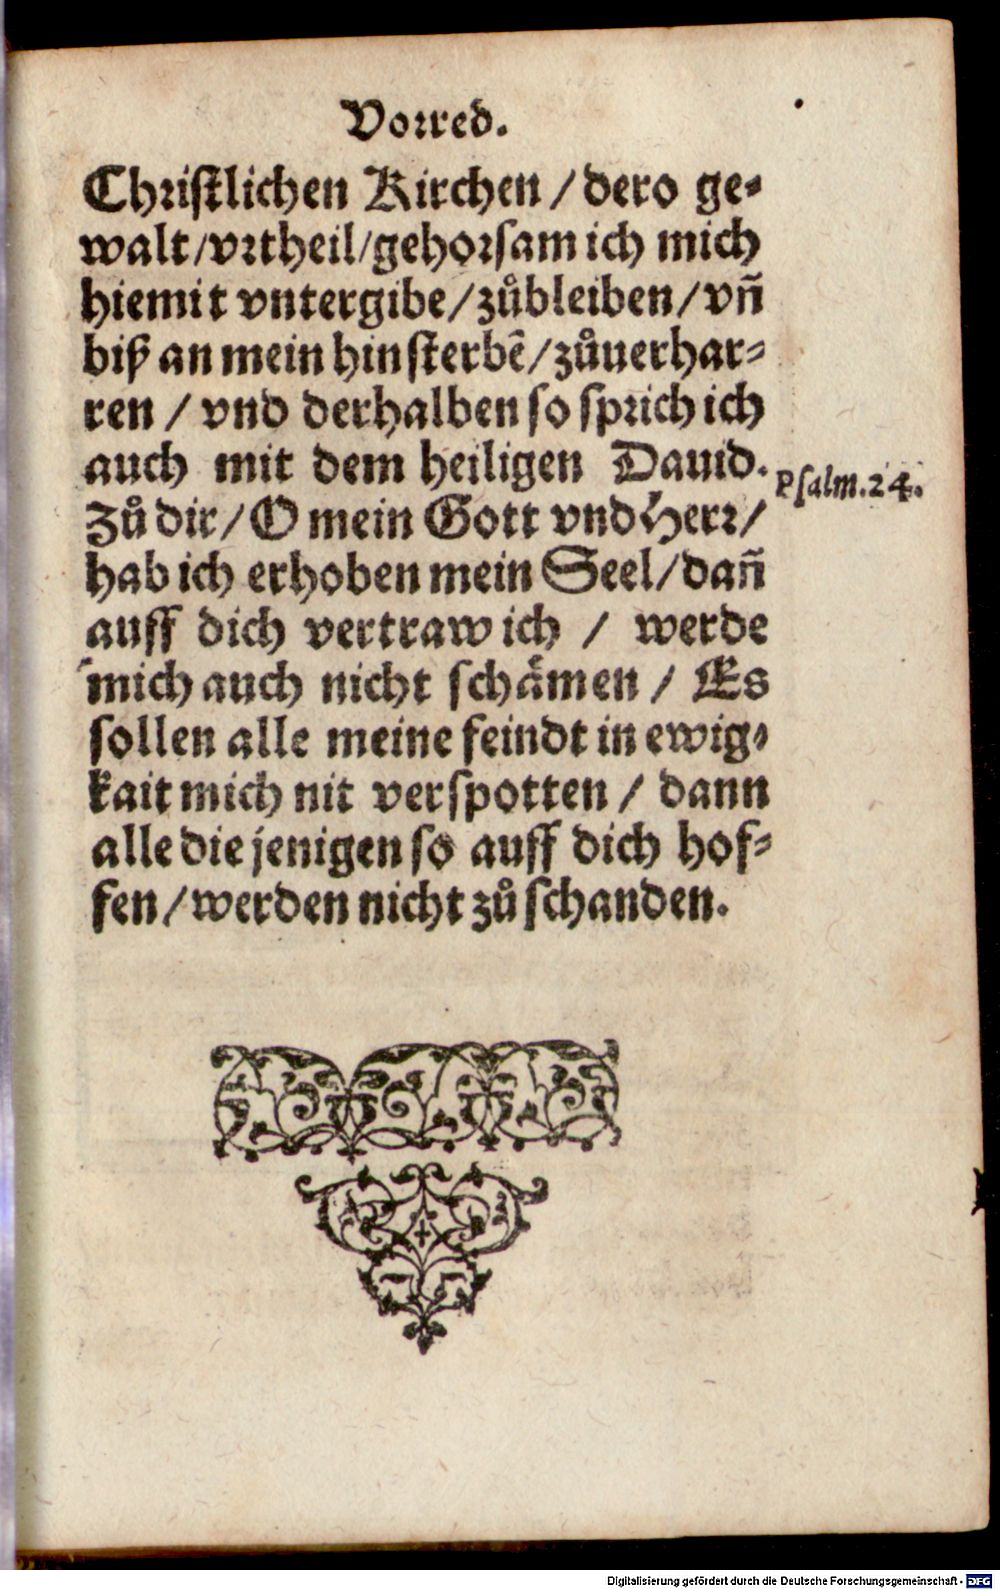 Vorred.
Chriſtlichen Kirchen / dero ge⸗
walt / vrtheil / gehorſam ich mich
hiemit vntergibe / zůbleiben / vñ
biß an mein hinſterbẽ / zůuerhar⸗
ren / vnd derhalben ſo ſprich ich
auch mit dem heiligen Dauid.
Psalm. 24.
Zů dir / O mein Gott vnd Herr /
hab ich erhoben mein Seel / dañ
auff dich vertraw ich / werde
mich auch nicht ſchämen / Es
ſollen alle meine feindt in ewig⸗
kait mich nit verſpotten / dann
alle die jenigen ſo auff dich hof⸗
fen / werden nicht zů ſchanden.
Digitalisierung gefördert durch die Deutsche Forschungsgemeinschaft - DFG